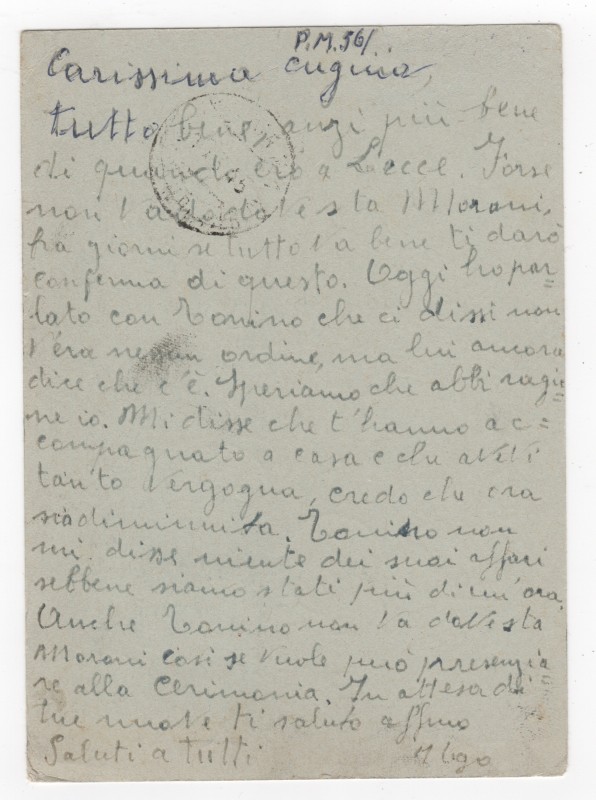 P.M.36/
Carissima cugina,
tutto bene, anzi più bene
di quando ero a Lecce. Forse
non va dove sta Morani,
fra giorni se tutto va bene ti darò
conferma di questo. Oggi ho par=
lato con Tonino che ci dissi non
v'era nessun ordine, ma lui ancora
dice che c'è. Speriamo che abbi ragio=
ne io. Mi disse che t'hanno ac=
compagnato a casa e che avevi
tanto vergogna, credo che ora
sia diminuita. Tonino non
mi disse niente dei suoi affari
sebbene siamo stati più di un'ora.
Anche Tonino non va dove sta
Morani così se vuole può presenzia=
re alla Cerimonia. In attesa di
tue nuove ti saluto affmo
Saluti a tutti Ugo